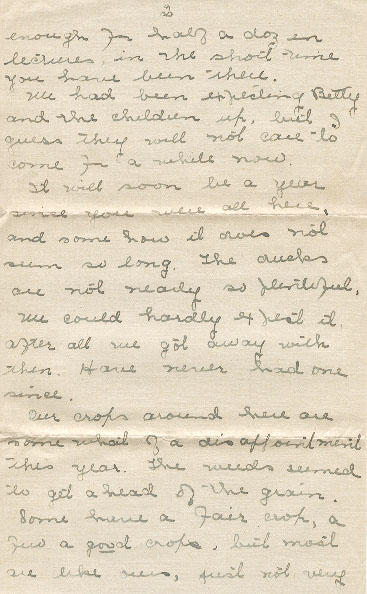 2
enough for half a dozen
lectures, in the short time
you have been there.
We had been expecting Betty
and the children up, but I
guess they will not care to
come for a while now.
It will soon be a year
since you were all here,
and some how it does not
seem so long. The ducks
are not nearly so plentiful,
we could hardly expect it,
after all we got away with
then. Have never had one
since.
Our crops around here are
some what of a disappointment
this year. The weeds seemed
to get a head of the grain.
Some have a fair crop, a
few a good crops, but most
are like ours, just not very